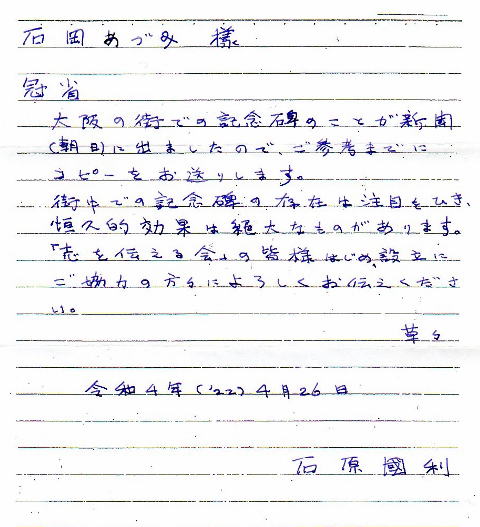 石岡あづみ 様
冠省
大阪の街での記念碑のことが新聞
(朝日)に出ましたので、ご参考までに
コピーをお送りします。
街中での記念碑の存在は注目をひき、
恒久的効果は絶大なものがあります。
「志を伝える会」の皆様はじめ、設立に
ご協力の方々によろしくお伝えくださ
い。
草々
令和4年('22)4月26日
石原國利